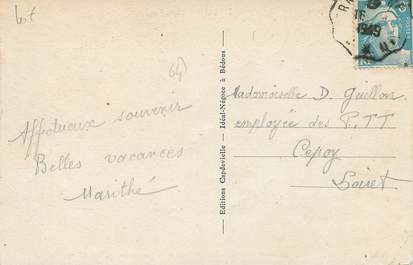 Lot
64)
1949
Affectueux souvenir
Belles vacances
Marithé
Editions Capdevielle — Idéal-Négoce à Bédous
Mademoiselle D. Guillon
employée des P.TT
Cepoy
Loiret